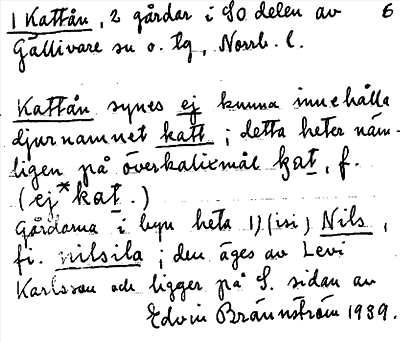 1 Kattån, 2 gårdar i SO delen av 6
Gällivare sn o. tg, Norrb. l.
Kattån synes ej kunna innehålla
djurnamnet katt; detta heter näm-
ligen på överkalixmål kat, f.
(ej *kat.)
Gårdarna i byn heta 1) (isi) Nils,
fi. nilsila; den äges av Levi
Karlsson och ligger på S. sidan av
Edvin Brännström 1939.